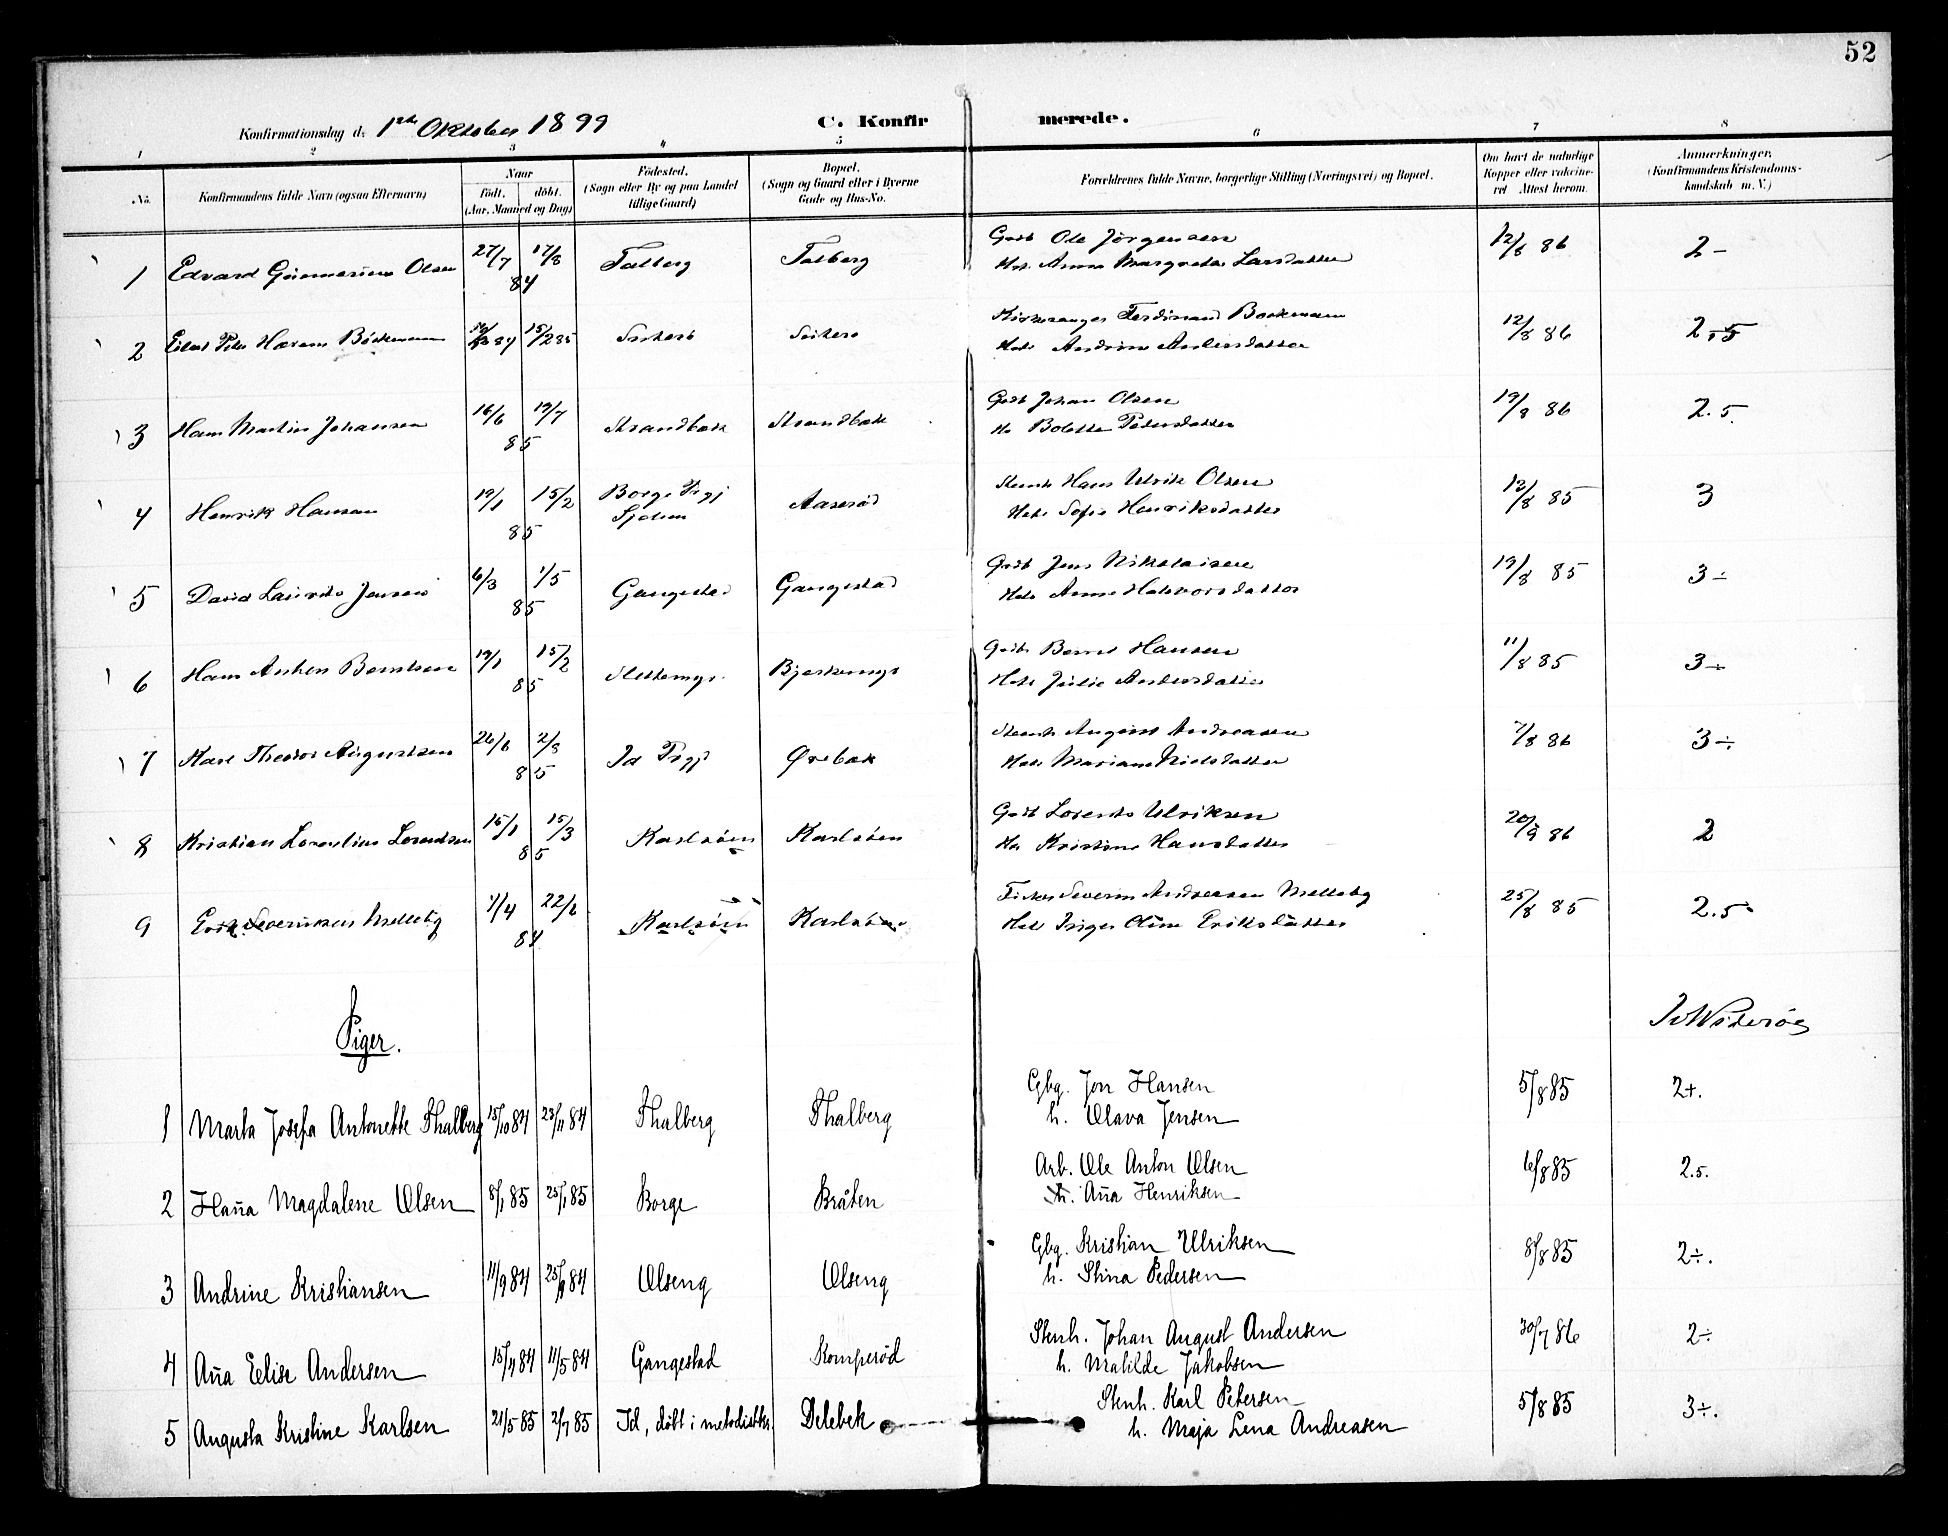 52
Konfirmationsdag d. 1ste Oktober 1899
C. Konfirmerede.
1 2 3 4 5 6 7 8
No.
Konfirmandens fulde Navn (ogsaa Efternavn)
Naar
født. døbt.
(Aar, Maaned og Dag)
Fødested.
(Sogn eller By og paa Landet
tillige Gaard)
Bopæl.
(Sogn og Gaard eller i Byerne
Gade og Hus-No.
Forældrenes fulde Navne, borgerlige Stilling (Næringsvei) og Bopæl.
Om havt de naturlige
Kopper eller vakcine-
ret Attest herom.
Anmærkninger.
(Konfirmandens Kristendoms-
kundskab m. V.)
1 Edvard Olsen 27/7 17/8 84 Talberg Talberg Gbr Ole Jørgensen 12/8 86 2-
Hst. Anna Margrethe Larsdatter
2 84 15/2 85 Ferdinand Bockmann 12/8 86 2,5
Hst. Andrine Andersdatter
3 Hans Martin Johansen 16/6 19/7 85 Strandbæk Strandbæk Johan Olsen 19/8 86 2.5.
Bolette Pedersdatter
4 Henrik Hansen 19/1 15/2 85 Borge Aaserød Hans Ulrik Olsen 13/8 85 3
Hst. Sofie Henriksdatter
5 David Lauritz Jensen 6/3 1/5 85 Gangestad Gangestad Jens Nikolaisen 19/8 85 3÷
Hst. Anne Halvorsdatter
6 Hans Anton Berntsen 19/1 15/2 85 Bjerkemyr Bernt Hansen 11/8 85 3÷
Hst. Julie Andersdatter
7 Karl Theodor Augustsen 26/6 2/8 85 Id Ørebæk August Andreasen 7/8 86 3÷
Hst. Mariane Nielsdatter
8 Kristian Lorentsen 15/1 15/3 85 Karlsøen Karlsøen Lorents Ulriksen 20/9 86 2
Kristine Hansdatter
9 Erik Severinsen Melleby 1/4 22/6 84 Karlsøen Karlsøen Fisker Severin Andreasen Melleby 25/8 85 2.5
Hst. Inger Oline Eriksdatter
Piger.
1 Marta Josefa Antonette Thalberg 15/10 84 23/11 84 Thalberg Thalberg Gbg. Jon Hansen 5/8 85 2+.
h. Olava Jensen
2 Han̄a Magdalene Olsen 8/1 85 25/1 85 Borge Bråten Arb. Ole Anton Olsen 6/8 85 2.5.
h. An̄a Henriksen
3 Andrine Kristiansen 11/9 84 Olseng Olseng Gbg. Kristian Ulriksen 8/8 85 2÷.
h. Stina Pedersen
4 An̄a Eelise Andersen 15/4 84 11/5 84 Gangestad Komperød Stenh. Johan August Andersen 30/7 86 2÷
h. Matilde Jakobsen
5 Augusta Kristine Karlsen 21/5 85 2/7 85 Id, døbt i metodistk. Delebek Stenh. Karl Petersen 5/8 85 3÷.
h. Maja Lena Andreasen